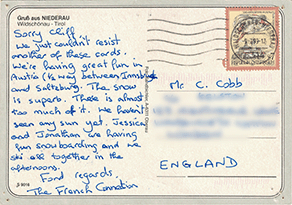 Gruß aus NIEDERAU
Wildschönau - Tirol
Sorry Cliff
We just couldn't resist
another of these cards.
We're having great fun in
Austria (½ way between Innsbruck
and Saltzburg. The snow
is superb. There is almost
too much of it. We haven't
seen any sun yet. Jessica
and Jonathan are having
fun snowboarding and we
ski all together in the
afternoons.
Fond regards.
The French Connection
Mr C. Cobb
ENGLAND